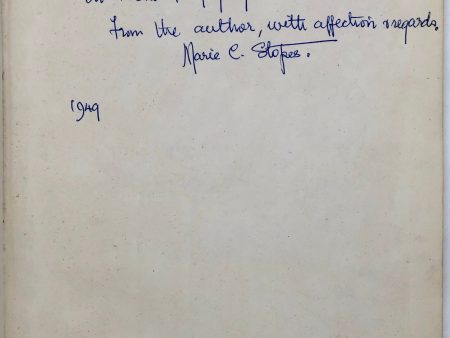 From the author, with affection & regards.
Marie C. Stopes.
1949